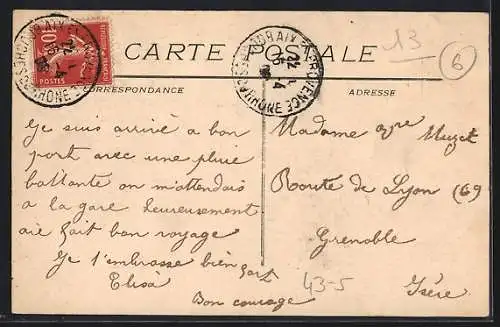 CARTE POSTALE
CORRESPONDANCE
ADRESSE
13
6
Je suis arrivé a bon
port avec une pluie
battante on m'attendais
a la gare heureusement
aié fait bon voyage
Je t'embrasse bien fort
Elisa
Bon courage
Madame Muzet
Route de Lyon (69
Grenoble
Isère
43-5
AIX EN PROVENCE
BCHES DU RHONE
10
POSTES